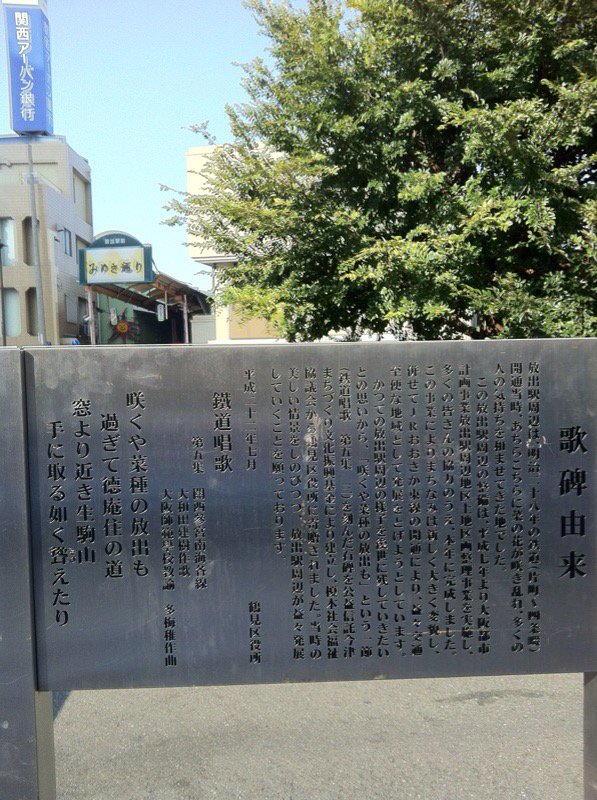 関西アーバン銀行
放出駅前
おぬき通り
歌碑由来
放出駅周辺は、明治二十八年の鉄道(片町〜四条畷)
開通当時、あちらこちらに菜の花が咲き乱れ、多くの
人の気持ちを和ませてきた地でした。
この放出駅周辺の整備は、平成七年より大阪都市
計画事業放出駅周辺地区土地区画整理事業を実施し、
多くの皆さんの協力のうえ、本年に完成しました。
この事業によりまちなみは新しく大きく変貌し、
併せてJRおおさか東線の開通により、益々交通
至便な地域として発展をとげようとしています。
かつての放出駅周辺の様子を後世に残していきたい
との思いから、「咲くや菜種の放出も」という一節
(鉄道唱歌 第五集 三)を刻んだ石碑を公益信託今津
まちづくり文化振興基金により建立し、榎本社会福祉
協議会から鶴見区役所に寄贈されました。当時の
美しい情景をしのびつつ、放出駅周辺が益々発展
していくことを願っております。
平成二十二年七月 鶴見区役所
鐵道唱歌
第五集 関西参宮南海各線
大和田建樹作歌
大阪師範學校教諭 多梅稚作曲
咲くや菜種の放出も
過ぎて徳庵住の道
窓より近き生駒山
手に取る如く聳えたり